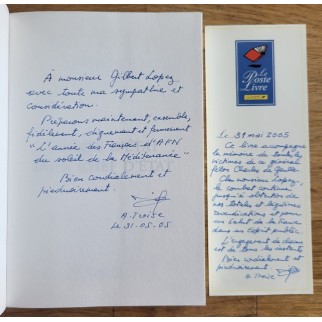 À monsieur Gilbert Lopez
avec toute ma sympathie et
considération.
Préparons maintenant, ensemble,
fidèlement, dignement et fermement
"L'année des Français d'AFN
du soleil de la Méditerranée"
Bien cordialement et
A. Troise
Le 31-05-05
La
Poste
Livre
Le 31 mai 2005
Ce livre accompagne
la mémoire de toutes les
victimes de ce général
félon Charles De Gaulle
Cher monsieur Lopez,
le combat continue
jusqu'à obtention de
nos totales et légitimes
revendications et pour
un salut de la France
dans un esprit public.
L'engagement de chacun
est de tous les instants
Bien cordialement et
A. Troise